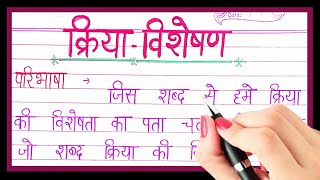 Date:
क्रिया-विशेषण
परिभाषा → जिस शब्द से हमे क्रिया
की विशेषता का पता
जो शब्द क्रिया की